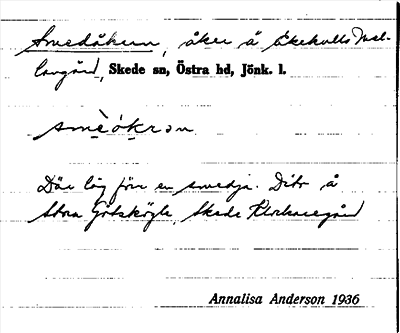 Smedåkern, åker å Åkehults Mel-
langård, Skede sn, Östra hd, Jönk. l.
smèòkrən
Där låg förr en smedja. Dito å
Stora Götsköyle, Skede Klockaregård
Annalisa Anderson 1936